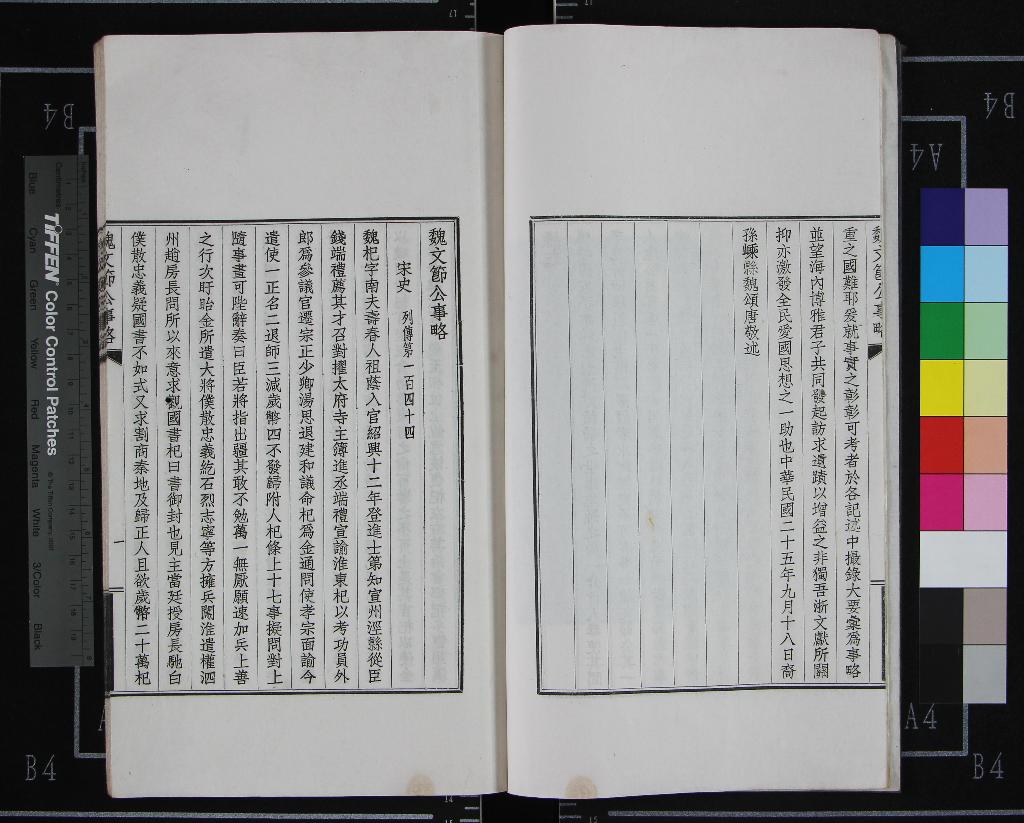 魏文節公事略
重之國難耶爰就事實之彰彰可考者於各記述中撮錄大要彙爲事略
並望海內博雅君子共同發起訪求遺蹟以增益之非獨吾浙文獻所關
抑亦激發全民愛國思想之一助也中華民國二十五年九月十八日裔
孫嵊縣魏頌唐敬述
魏文節公事略
宋史 列傳第一百四十四
魏杞字南夫壽春人祖蔭入官紹興十二年登進士第知宣州涇縣從臣
錢端禮薦其才召對擢太府寺主簿進丞端禮宣諭淮東杞以考功員外
郎爲參議官遷宗正少卿湯思退建和議命杞爲金通問使孝宗面諭今
遣使一正名二退師三減歲幣四不發歸附人杞條上十七事擬問對上
隨事畫可陛辭奏曰臣若將指出疆其敢不勉萬一無厭願速加兵上善
之行次盱眙金所遣大將僕散忠義紇石烈志寧等方擁兵闖淮遣權泗
州趙房長問所以來意求觀國書杞曰書御封也見主當廷授房長馳白
僕散忠義疑國書不如式又求割商秦地及歸正人且欲歲幣二十萬杞
魏文節公事略
一
B4
A4
B4
A4
B4
B4
TIFFEN Color Control Patches
© The Tiffen Company, 2007
Centimetres
Inches
Blue
Cyan
Green
Yellow
Red
Magenta
White
3/Color
Black